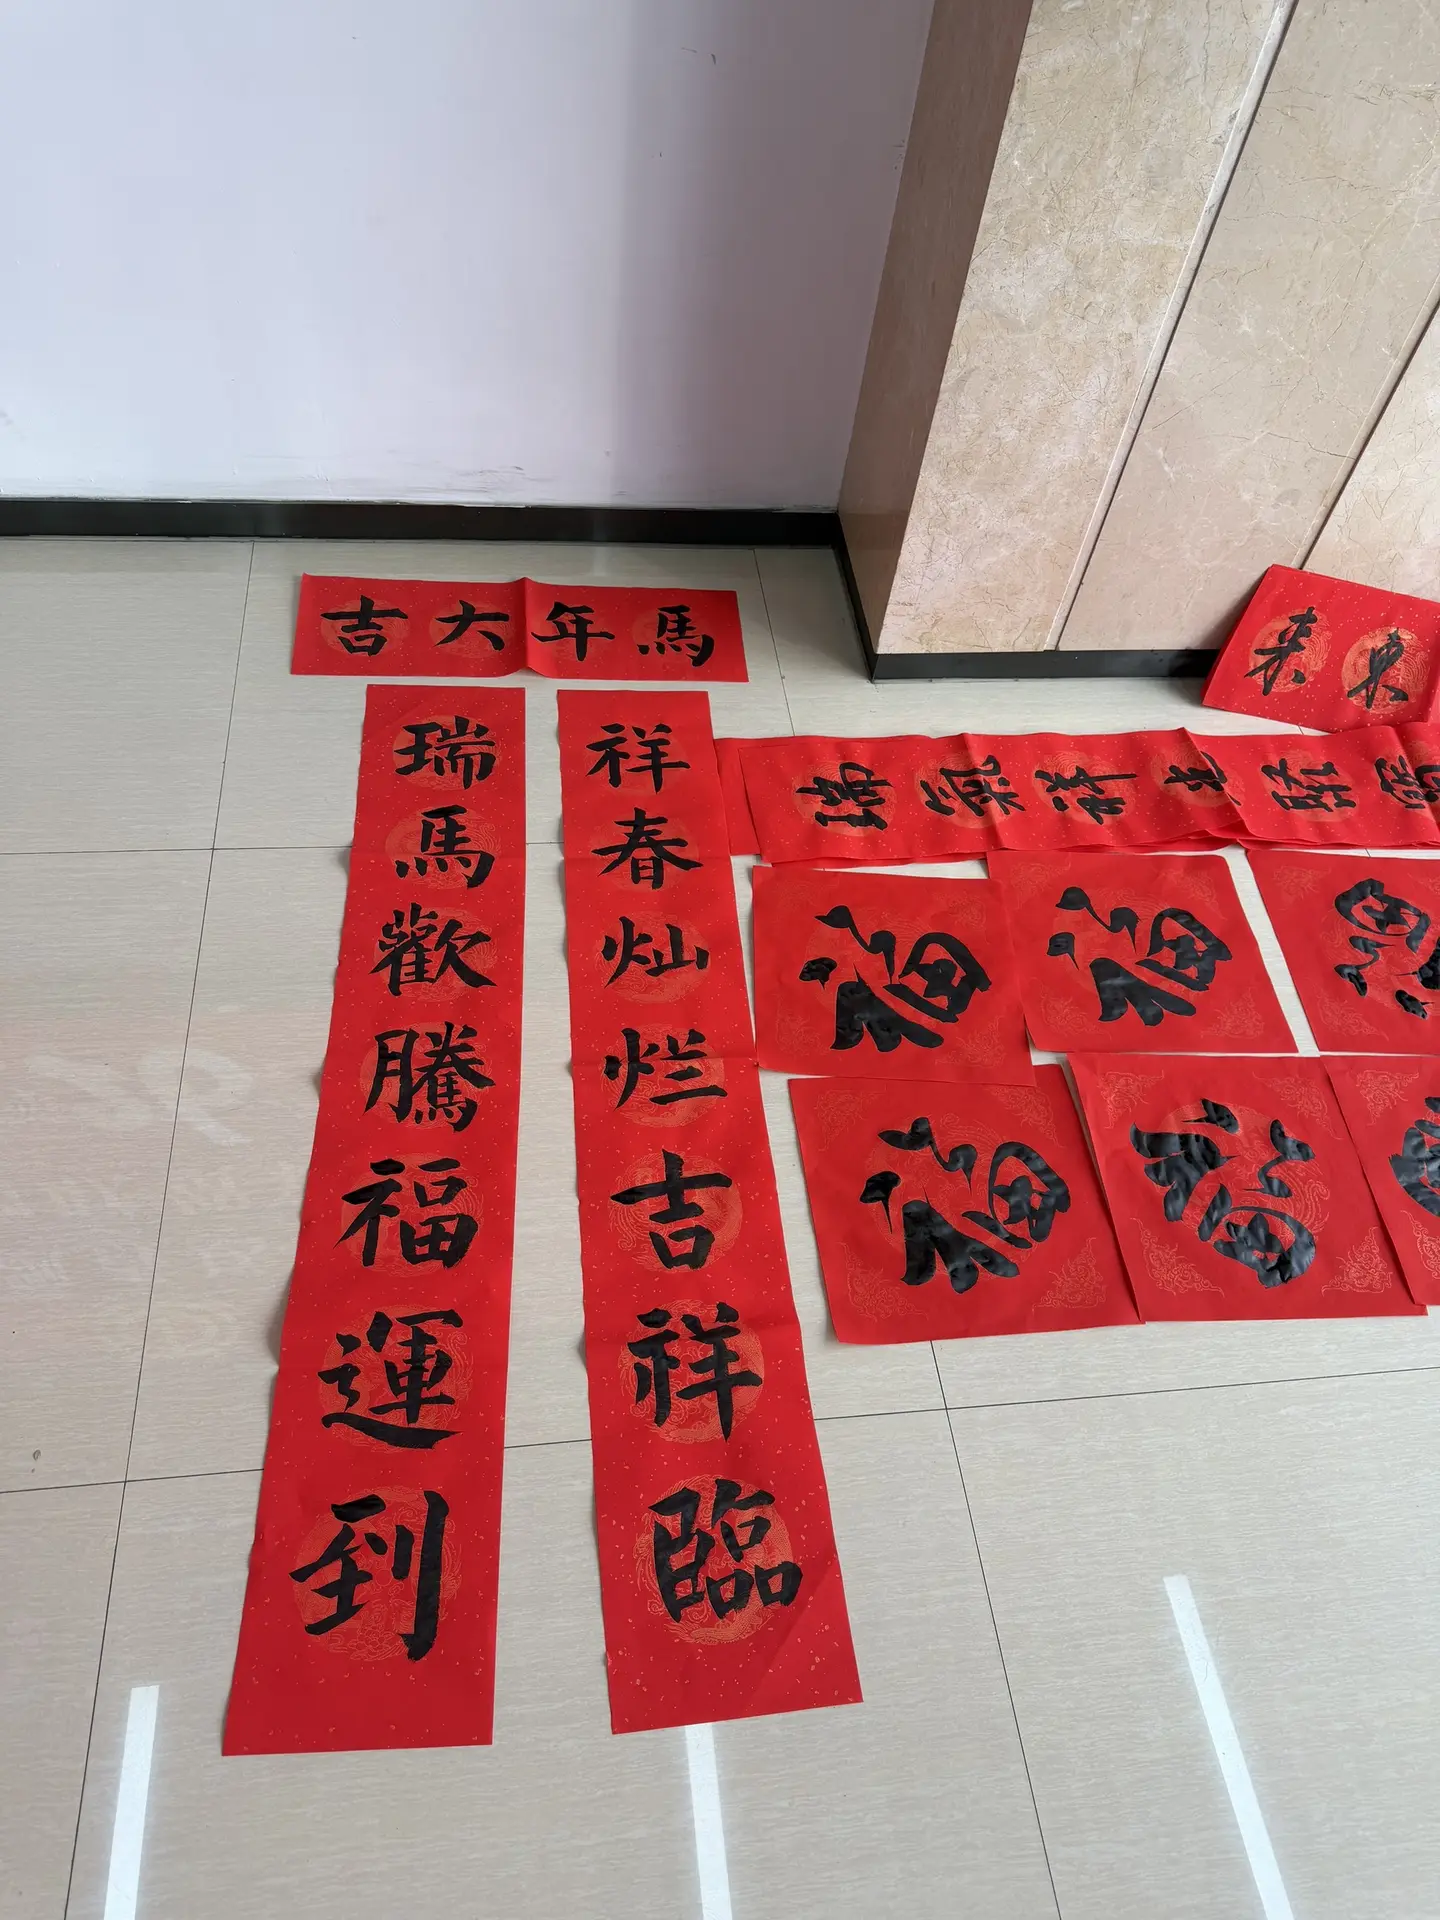 馬年大吉
祥春灿烂吉祥臨
瑞馬歡騰福運到
東来
瑞氣祥光
福
福
福
福
福